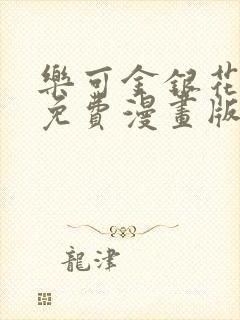 樂可金銀花
免費漫畫版
龍津